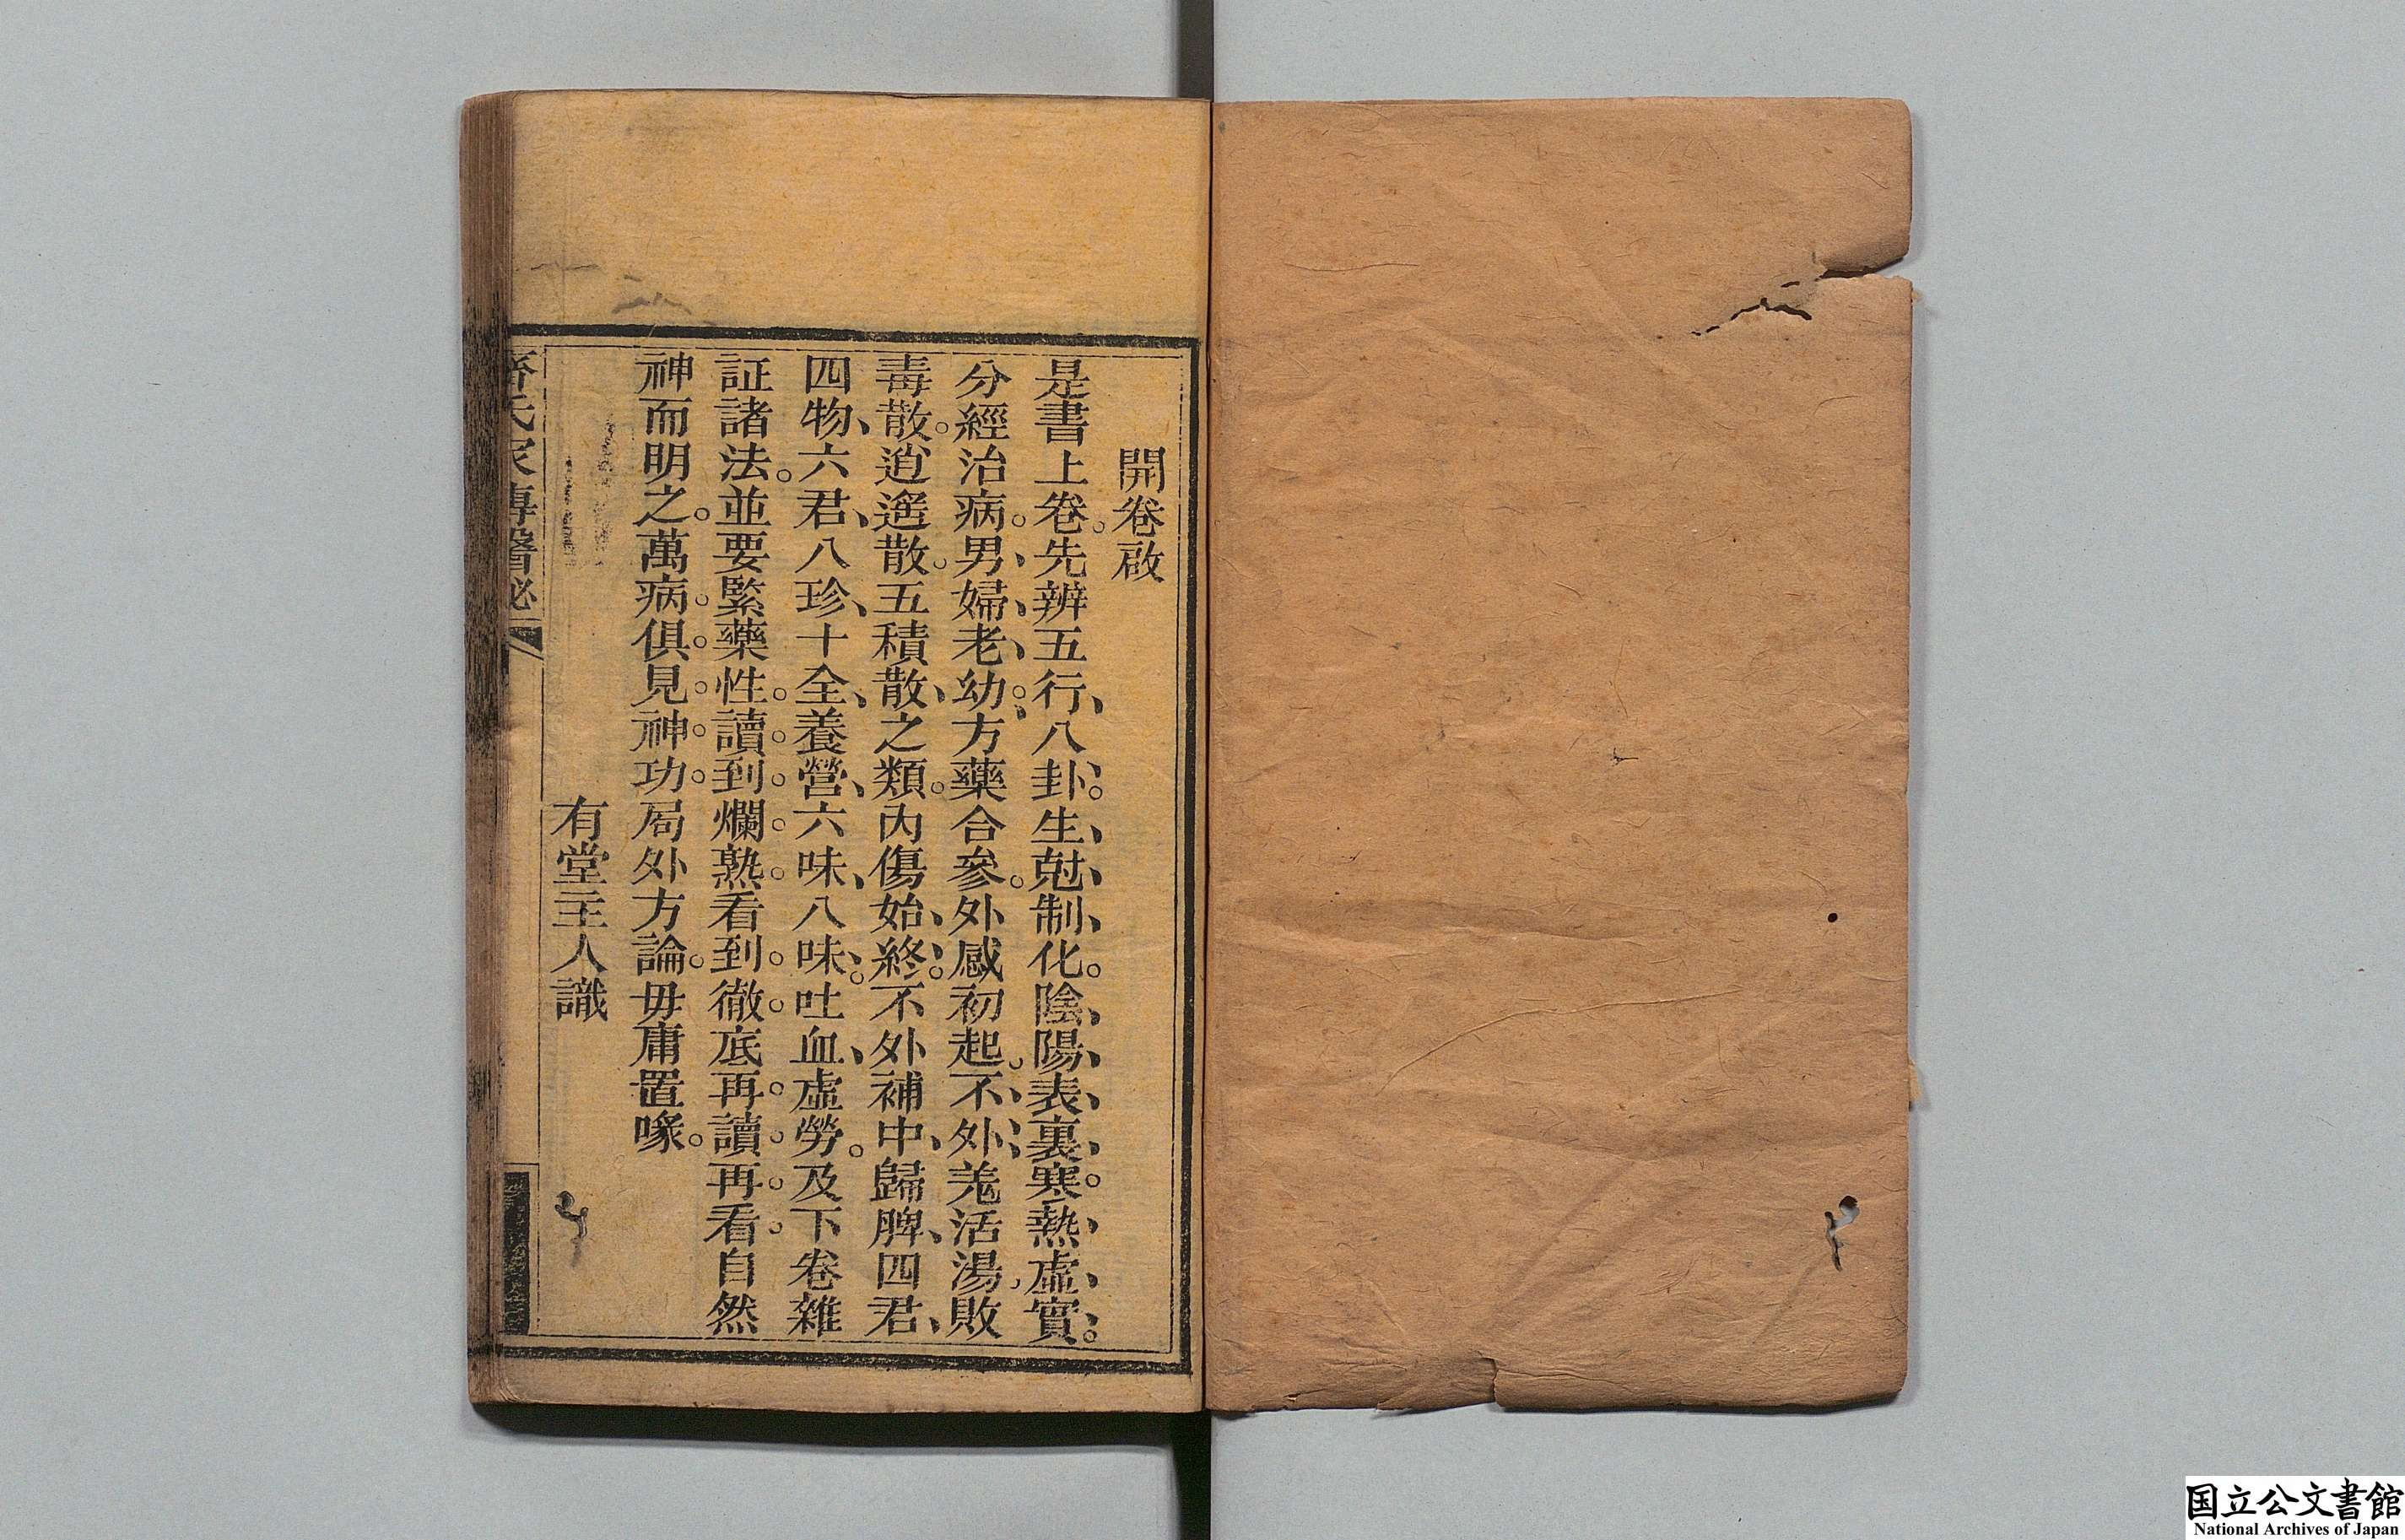 開卷啟
是書上卷。先辨五行、八卦、。生、尅、制、化。陰、陽、表、裏、。寒、熱、虛、實、。
分經治病。男、婦、老、幼、。方藥合參。外感初起、不、外、羗活湯、敗
毒散。逍遙散。五積散、之類。內傷始、終、。不外補中、歸脾、四君、
四物、六君、八珍、十全、養營、六味、八味、。吐血、虛勞。及下卷雜
証諸法。並要緊藥性。讀。到。爛。熟。看到。徹。底。再。讀。再。看。自然
神而明之。萬病。俱。見。神。功。局外方論。毋庸置喙。
有堂主人識
齊氏家傳醫秘
国立公文書館
National Archives of Japan